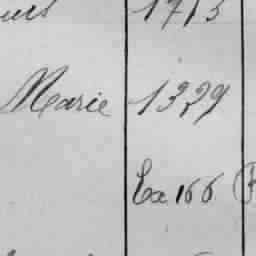 1713
Marie 1329
Ex 166